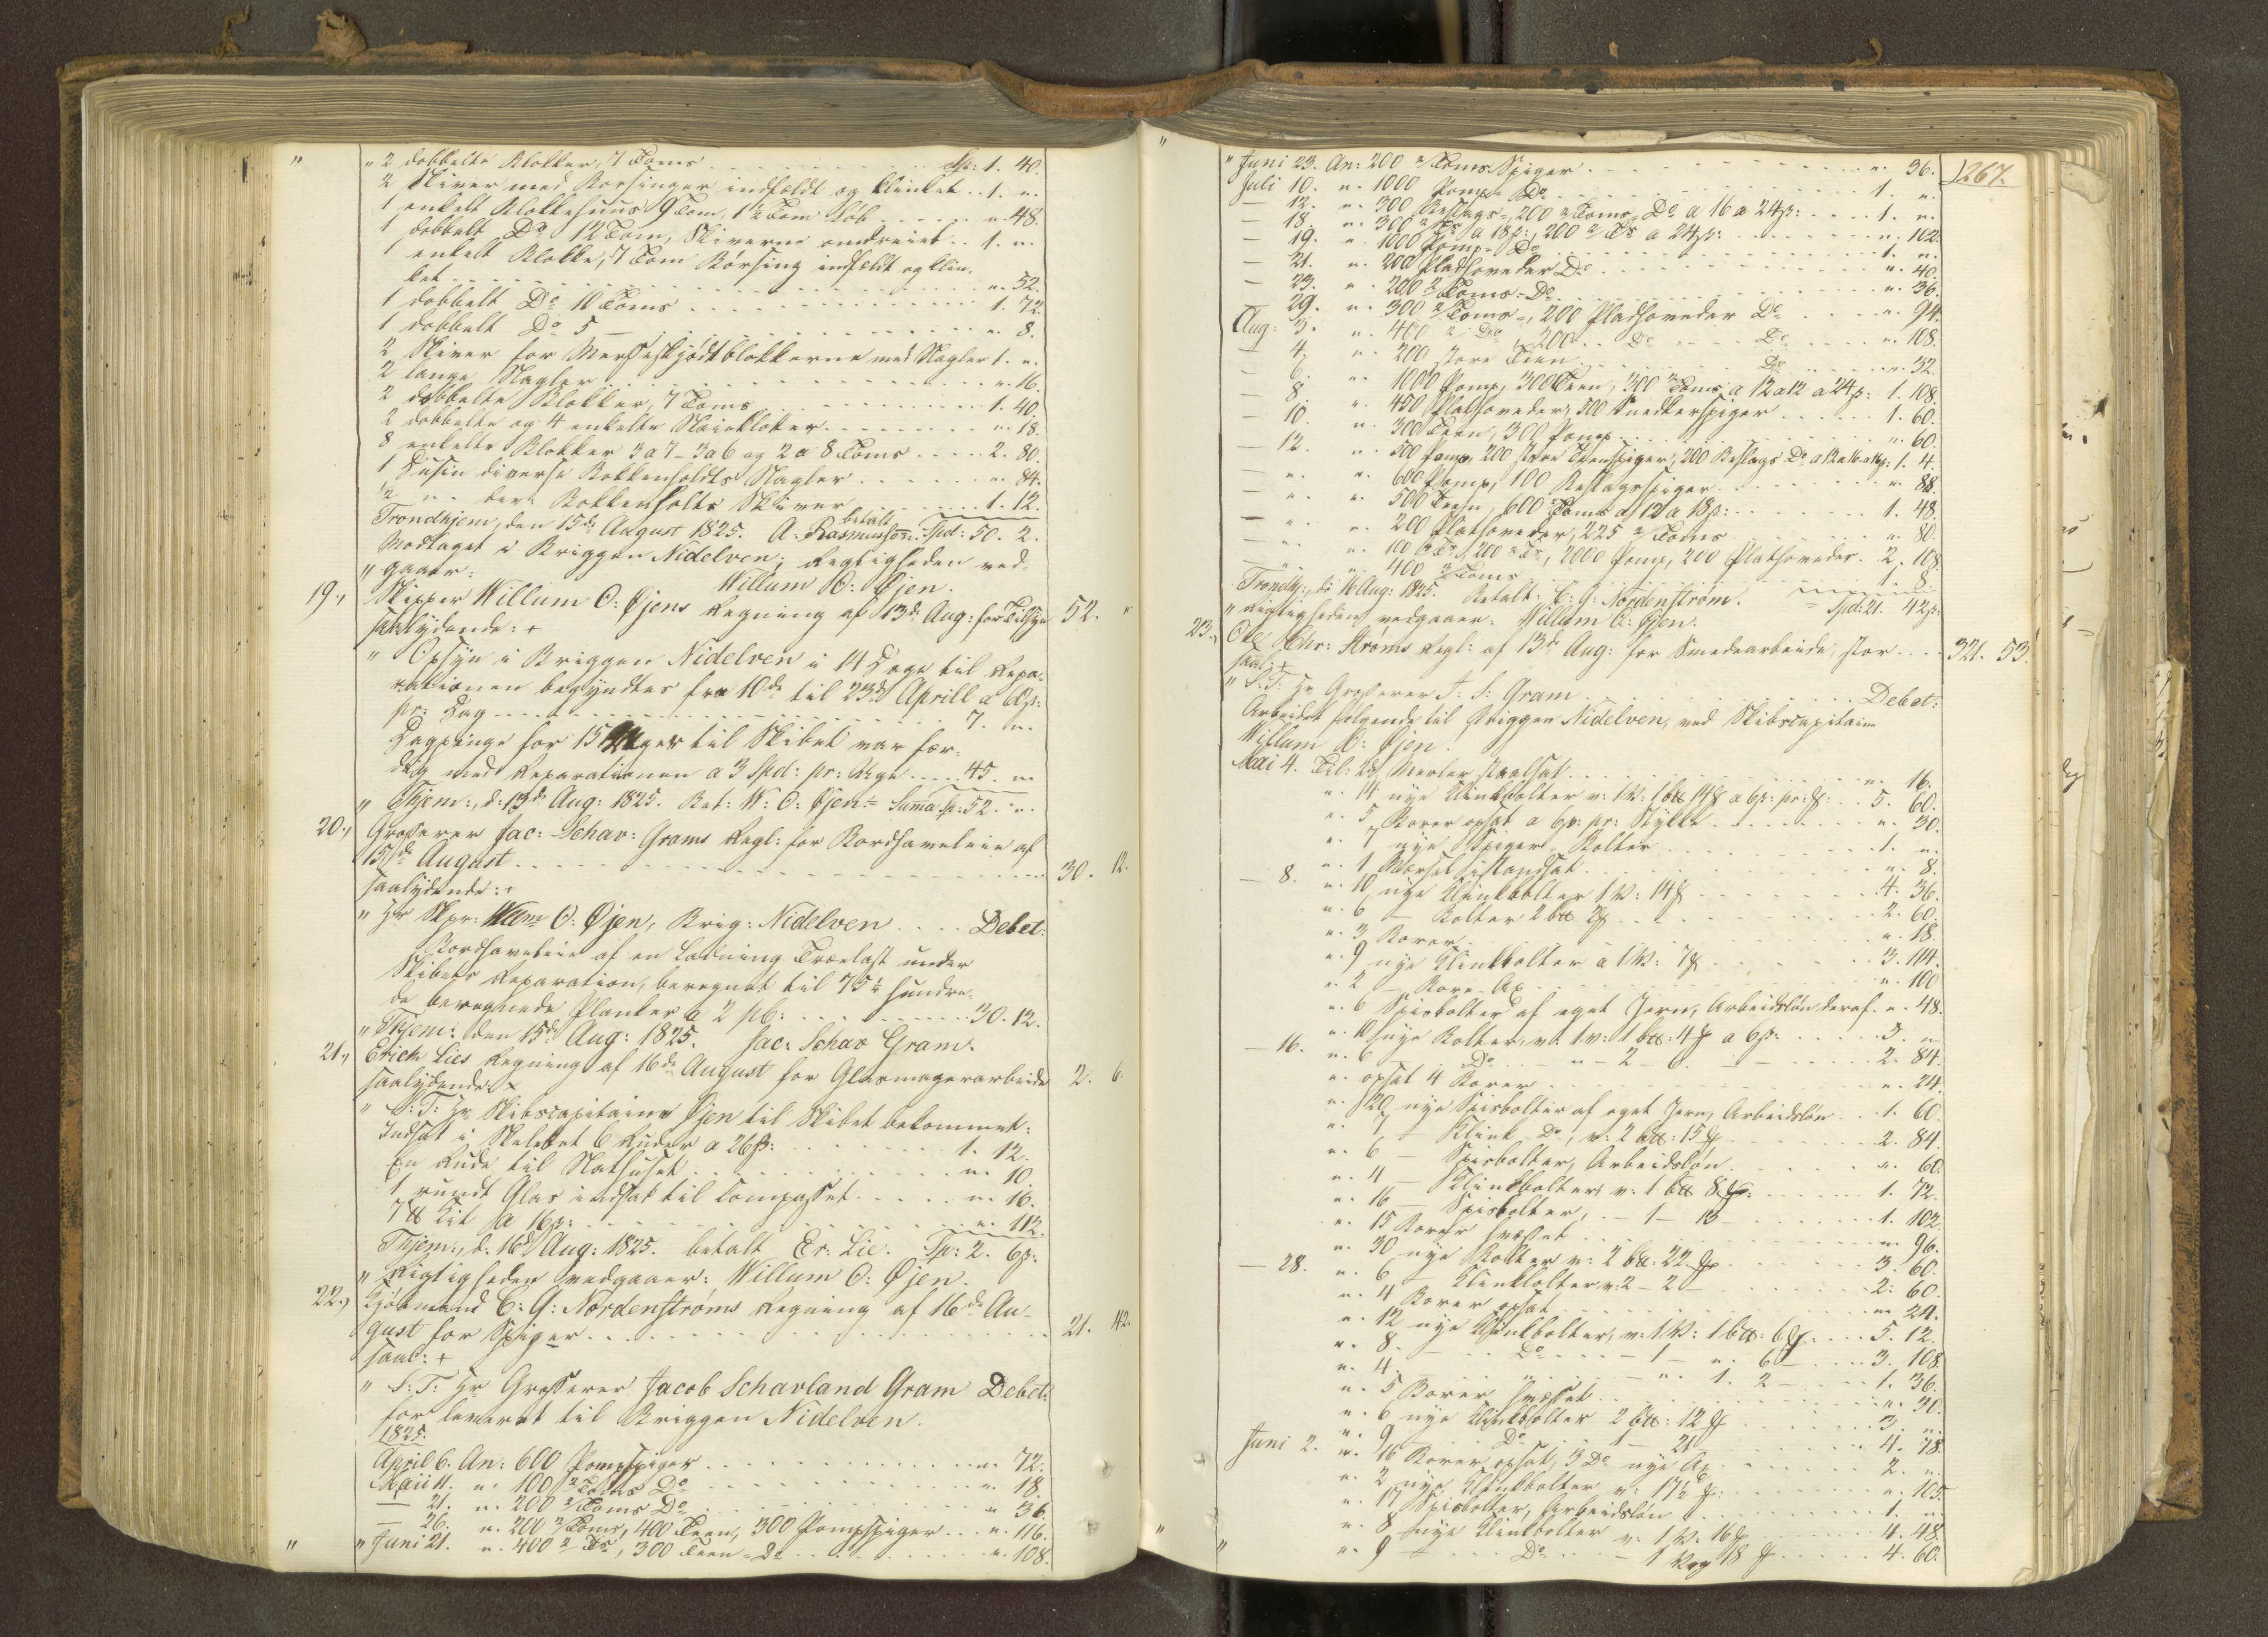 " " 2 dobbelte Blokker, 7 Toms . . . Sp: 1. 40.
2 Skiver med Borsinger indfældt og klinket . . 1. "
1 enkelt Blokkehuus 9 Tom, 1½ Tom Løb . . . " 48.
1 dobbelt Do 12 Tom, Skiverne omdreiet . . 1. "
1 enkelt Blokke, 7 Tom Børsing indfældt og klin-
ket . . . " 52.
1 dobbelt Do 10 Toms . . . 1. 72.
1 dobbelt Do 5 — . . . " 8.
2 Skiver for Merseskjødtblokkerne med Nagler 1. "
2 lange Nagler . . . " 16.
2 dobbelte Blokker, 7 Toms . . . 1. 40.
2 dobbelte og 4 enkelte . . . " 18.
8 enkelte Blokker 3 a 7 - 3 a 6 og 2 a 8 Toms . . . 2. 80.
1 Dusin diverse Bokkenholdts Nagler . . . " 84.
½ " der: Bokkenholts Skiver . . . 1. 12.
Trondhjem, den 15de August 1825. betalt A. Rasmussen. Spd: 50. 2.
Modtaget i Briggen Nidelven; Rigtigheden ved-
" gaaer: Willum O: Øjen.
19., Skipper Willum O: Øjens Regning af 13de Aug: for Tilsyn 52. "
saalydende: +
" Opsyn i Briggen Nidelven i 14 Dage til Repa-
rationen begyndtes fra 10de til 23de Aprill a 60s:
pr: Dag . . . 7. "
Dagpenge for 15 Uger til Skibet var fær-
dig med Reparationen a 3 Spd: pr: Uge . . . 45. "
" Thjem:, d: 13de Aug: 1825. Bet: W: O: Øjen = Suma Sp: 52. "
20., Grosserer Jac: Schav: Grams Regl: for Bordhaveleie af
15de August . . . 30. 12.
saalydende: +
" Hr Skpr: Wllm O: Øjen, Brig: Nidelven . . . Debet:
Bordhaveleie af en Ladning Trælast under
Skibets Reparation, beregnet til 75½ Hundre-
de beregnede Planker a 2 . . . 30. 12.
" Thjem: den 15de Aug: 1825. Jac: Schav Gram.
21., Erich Lies Regning af 16de August for Glasmagerarbeide 2. 6.
saalydende: +
" S: T: Hr Skibscapitaine Øjen til Skibet bekommet:
Indsat i Skilektet 6 Ruder a 26s: . . . 1. 12.
En Rude til Nathuset . . . " 10.
1 rundt Glas indsat til Compasset . . . " 16.
7 ℔ Kit a 16s: . . . " 112.
Thjem:, d: 16de Aug: 1825. betalt Er: Lie. Sp: 2. 6s:
" Rigtigheden vedgaaer: Willum O: Øjen.
22., Kjøbmand C: G: Nordenstrøms Regning af 16de Au-
gust for Spiger . . . 21. 42.
saal: +
" S: T: Hr Grosserer Jacob Schavland Gram Debet:
for leveret til Briggen Nidelven.
1825.
April 6. An: 600 Pompspiger . . . " 72.
Maii 11. " 100 2/Toms Do . . . " 18.
— 21. " 200 2/Toms Do . . . " 36.
— 26. " 200 2/Toms, 400 Teen, 300 Pompspiger . . . " 116.
" " Juni 21. " 400 2/To, 300 Teen - Do . . . " 108.
267.
" " Juni 23. An: 200 2/Toms Spiger . . . " 36.
Juli 10. " 1000 Pomp - Do . . . 1. "
— 12. " 300 Beslags-, 200 2/Toms Do a 16 a 24s: . . . 1. "
— 18. " 300 2/To a 18s:, 200 2/To a 24s: . . . " 102.
— 19. " 1000 Pomp- Do . . . 1. "
— 21. " 200 Pladhoveder Do . . . " 40.
— 23. " 200 2/Toms - Do . . . " 36.
— 29. " 300 2/Toms -, 200 Pladhoveder Do . . . " 94.
Aug: 3. " 400 2/ Do, 200 . . Do . . . Do . . . " 108.
— 4. " 200 store Teen . . . Do . . . " 32.
— 6. " 1000 Pomp, 300 Teen, 300 2/Toms a 12 a 12 a 24s: 1. 108.
— 8. " 450 Plathoveder, 500 Snedkerspiger . . . 1. 60.
— 10. " 300 Teen, 300 Pomp . . . " 60.
— 12. " 500 Pomp, 200 store Teenspiger, 200 Beslags Do a 12 a 16 a 16s: 1. 4.
— " " 600 Pomp, 100 Beslagsspiger . . . " 88.
— " " 500 Teen, 600 Toms a 12 a 18s: . . . 1. 48.
— " " 200 Plathoveder, 225 2/Toms . . . " 80.
— " " 100 To, 200 To, 2000 Pomp, 200 Plathoveder. 2. 108.
— " " 400 2/Toms . . . 1. 8.
Trondhj:, d: 16 Aug: 1825. Betalt: C: G: Nordenstrøm. = Spd: 21. 42s:
" Rigtigheden vedgaaer: Willum O: Øjen.
23., Ole Chr: Strøms Regl: af 13de Aug: for Smedearbeide, stor . . . 321. 53.
saal: +
" S: T: Hr Grosserer J: S: Gram . . . Debet:
Arbeidet følgende til Briggen Nidelven, ved Skibscapitain
Willum O: Øjen.
Mai 4. Til: 28 staalsat . . . " 16.
" 14 nye Klinkbolter v: 1 V: 1 b℔ 14 ℔ a 6s: pr: ℔: . . 5. 60.
" 5 Borer opsat a 6s: pr: Stykke . . . " 30.
" 7 nye Spiger Bolter . . . 1. "
" 1 istandsat . . . " 8.
— 8. " 10 nye Klinkbolter 1 V: 14 ℔ . . . 4. 36.
" 6 — Bolter 2 b℔ 2 ℔ . . . 2. 60.
" 3 Borer . . . " 18.
" 9 nye Klinkbolter a 1 V: 7 ℔ . . . 3. 114.
" 2 — Bore - Ax . . . " 100
" 6 Spisbolter af eget Jern, Arbeidsløn deraf . " 48.
— 16. " 10 nye Bolter, v: 1 v: 1 b℔: 4 ℔ a 6s: . . . 5. "
" 6 — Do . . . " — 2 — 6. — . . . 2. 84.
" opsat 4 Borer . . . " 24.
" 20 nye Spisbolter af eget Jern, Arbeidsløn . . . 1. 60.
" 7 — Klink - Do, v: 2 b℔: 15 ℔ . . . 2. 84.
" 6 — Spisbolter, Arbeidsløn . . . " 60.
" 4 — Klinkbolter v: 1 b℔ 8 ℔: . . . 1. 72.
" 16 — Spisbolter, . — 1 — 13 — . . . 1. 102.
" 15 Borer hvæsset . . . " 96.
— 28. " 30 nye Bolter v: 2 b℔: 22 ℔ . . . 3. 60.
" 6 — Klinkbolter v: 2 — 2 — . . . 2. 60.
" 4 Borer opsat . . . " 24.
" 12 nye Klinkbolter, v: 1 V: 1 b℔: 6 ℔ . . . 5. 12.
" 8. — . . Do . . . — 1 — " 6 — . . . 3. 108.
" 4. . . . " . . . — " 1. 2 — . . . 1. 36.
" 5 Borer hvæsset . . . " 30.
" 6 nye Klinkbolter 2 b℔: 12 ℔ . . . 3. "
" 9 — . . . Do . . . 1 — 21 . . . 4. 78.
Juni 2. " 16 Borer opsat, 3 Do nye Ax . . . 2. "
" 2 nye Klinkbolter v: 17½ ℔: . . . " 105.
" 17 Spisbolter, Arbeidsløn . . . 1. "
" 8 nye Klinkbolter v: 1 V: 16 ℔ . . . 4. 48.
" " " 9 — . . . Do . . . — 1 Vog 18 ℔ . . . 4. 60.